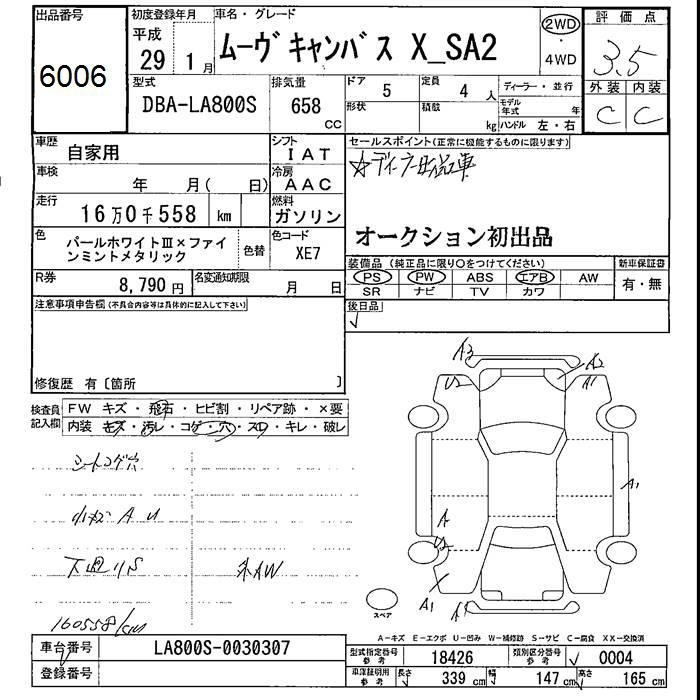 出品番号 初度登録年月 車名・グレード 評価点
6006 平成 29 1月 ムーヴキャンバス X_SA2 2WD・4WD 3.5
外装 内装
C C
型式 DBA-LA800S 排気量 658 CC ドア 5 定員 4 人 ディーラー・並行
形状 積載 kg モデル年式 年
ハンドル 左・右
車歴 自家用 シフト IAT セールスポイント(正常に機能するものに限ります)
車検 年 月( 日) 冷房 AAC
走行 16万0千558 km 燃料 ガソリン
オークション初出品
色 パールホワイトⅢ×ファインミントメタリック 色替 色コード XE7
装備品(純正品に限り○をつけてください) 新車保証書
PS PW ABS エアB AW 有・無
SR ナビ TV カワ
R券 8,790円 名変通知期限 月 日
注意事項申告欄(不具合内容等は具体的に記入して下さい) 後日品
修復歴 有〔箇所 〕
検査員記入欄 FW キズ・飛石・ヒビ割・リペア跡・×要
内装 キズ・汚レ・コゲ・穴・スレ・キレ・破レ
シートコゲ穴
小キズ A U
下廻リS
160558km
A3 A2
U2 A1
A1
A
U2
A1 A1
スペア
A-キズ E-エクボ U-凹み W-補修跡 S-サビ C-腐食 XX-交換済
車台番号 LA800S-0030307
登録番号
型式指定番号 参考 18426 類別区分番号 参考 0004
車庫証明用 参考 長さ 339 cm 幅 147 cm 高さ 165 cm